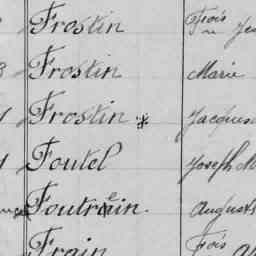 Frostin Fois
Frostin Marie
Frostin * Jacques
Foutel Joseph M
Foutrein. August
Frain Fois